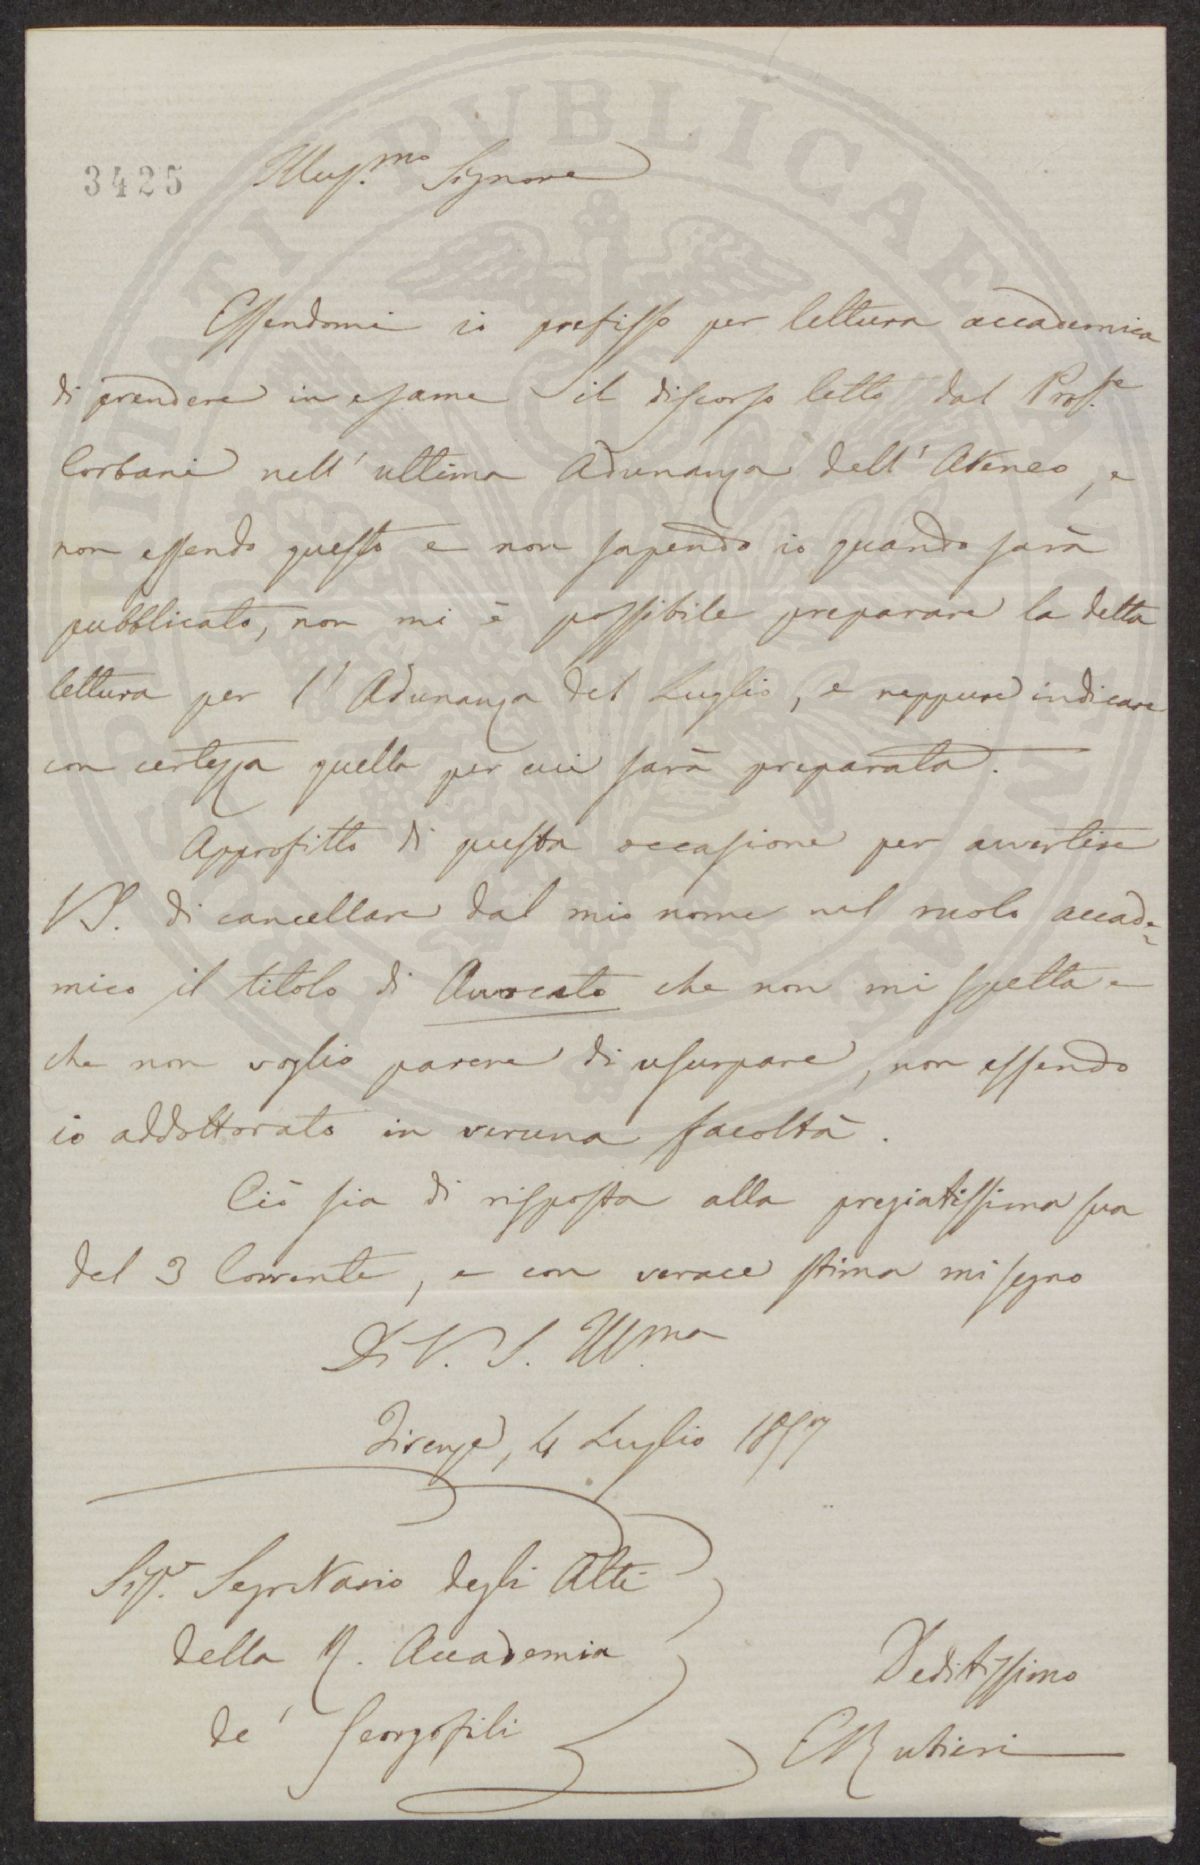 PROSPERITATI PUBLICAE AUGENDAE
3425
Illus.mo Signore
Essendomi io prefisso per lettura accademica
di prendere in esame il discorso letto dal Prof.re
Corbani nell' ultima Adunanza dell' Ateneo, e
non essendo questo e non sapendo io quando sarà
pubblicato, non mi è possibile preparare la detta
lettura per l' Adunanza del Luglio, e neppure indicare
con certezza quella per cui sarà preparata.
Approfitto di questa occasione per avvertire
VS. di cancellare dal mio nome nel ruolo accade=
mico il titolo di Avvocato che non mi spetta e
che non voglio parere di usurpare, non essendo
io addottorato in veruna facoltà.
Ciò sia di risposta alla pregiatissima sua
del 3 Corrente, e con verace stima mi segno
Di V. S. Ill.ma
Firenze, 4 Luglio 1857
Sigr. Segretario degli Atti
della R. Accademia
de' Georgofili
Deditissimo
E Rubieri